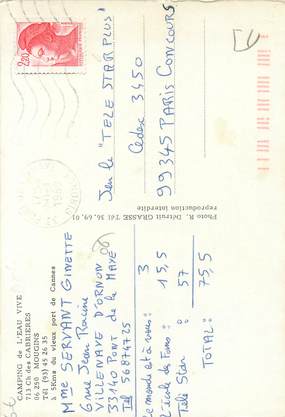 CAMPING de L'EAU VIVE
713 Ch des CABRIERES
06 250 MOUGINS
Tél (93) 45 26 35
5Kms du vieux port de Cannes
Mme SERVANT GINETTE
6 rue Jean Racine
VILLENAVE D'ORNON
33140 PONT de la MAYE
Tel 56 87 47 25
Le monde est à vous : 3
L'école des Fans : 15,5
Télé Star : 57
TOTAL : 75,5
Photo R. Détruit GRASSE Tél. 36.69.01
reproduction interdite
Jeu le "TELE STAR PLUS"
Cedex 3450
99345 PARIS CONCOURS
2,20